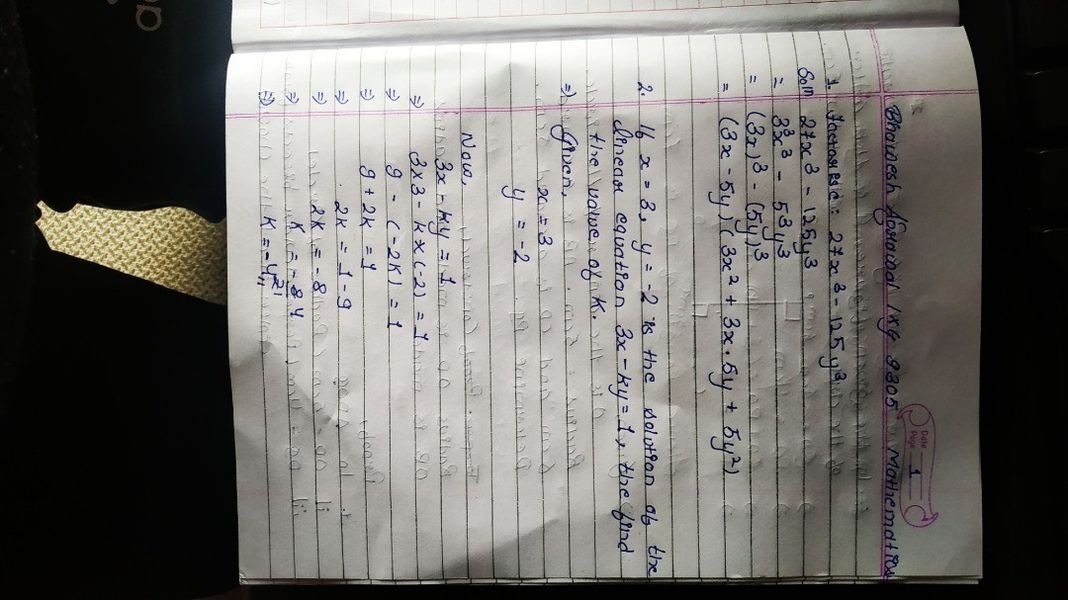 Date
Page 1
Bhawesh Agrawal IXG 9305 Mathematics
1. Factorise: 27x³ - 125y³
Soln 27x³ - 125y³
= 3³x³ - 5³y³
= (3x)³ - (5y)³
= (3x - 5y) (3x² + 3x.5y + 5y²)
2. If x = 3, y = -2 is the solution of the
linear equation 3x - ky = 1, the find
the value of k.
⇒ Given,
x = 3
y = -2
Now,
3x - ky = 1
⇒ 3x3 - k x (-2) = 1
⇒ 9 - (-2k) = 1
⇒ 9 + 2k = 1
⇒ 2k = 1 - 9
⇒ 2k = -8
⇒ k = -8 4
⇒ k = -4 2